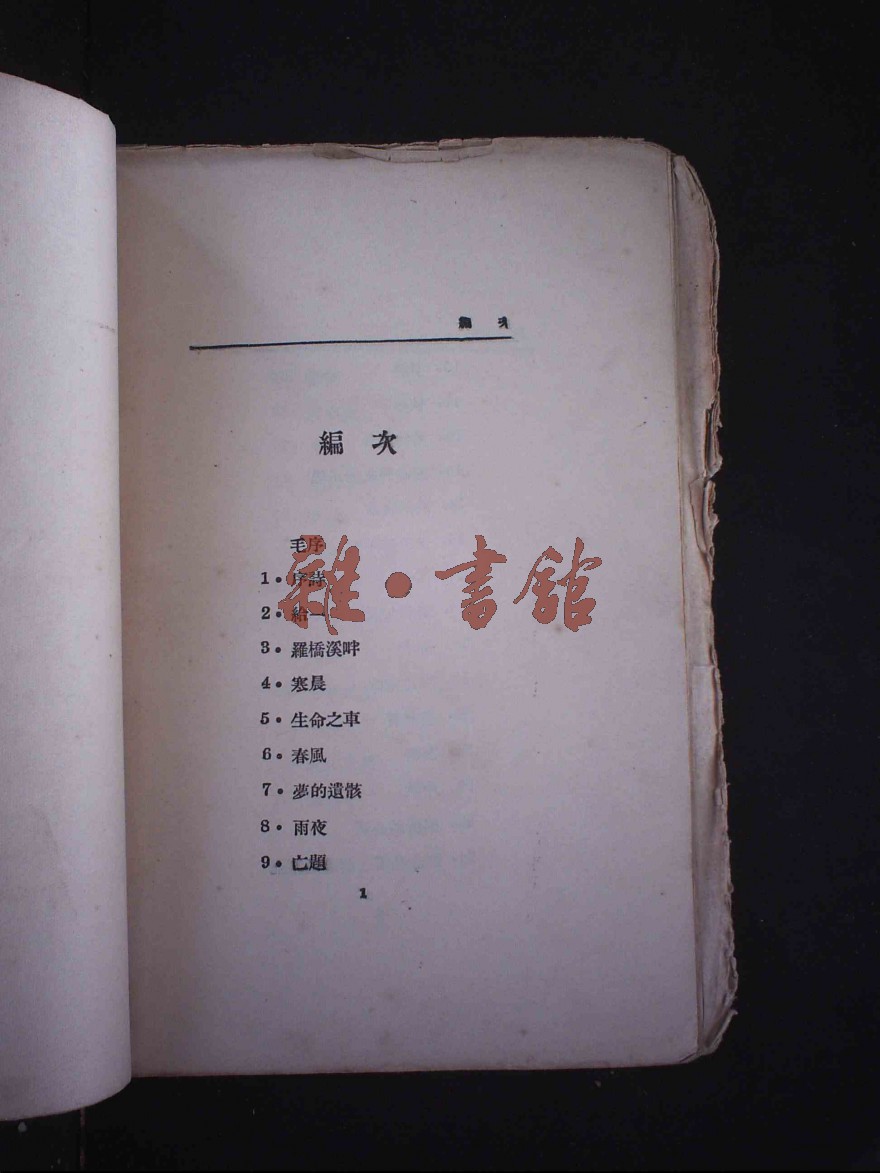 編 次
編 次
毛序
1．序詩
2．給一
3．羅橋溪畔
4．寒晨
5．生命之車
6．春風
7．夢的遺骸
8．雨夜
9．亡題
1
雜·書館